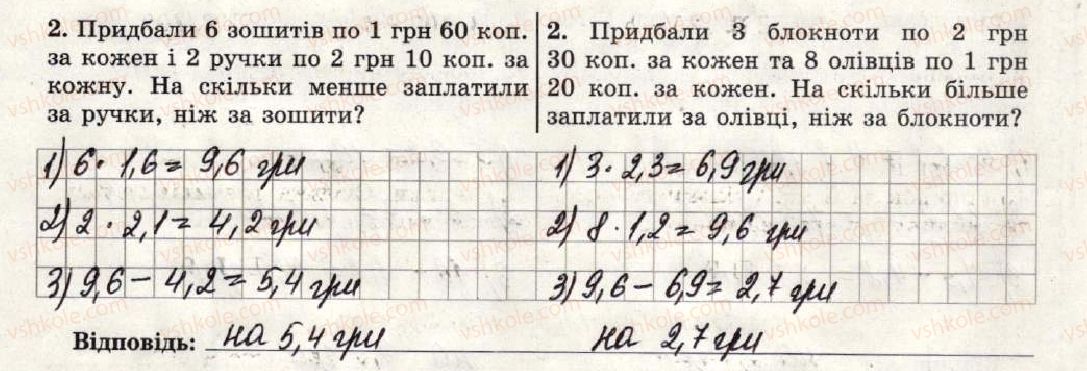 2. Придбали 6 зошитів по 1 грн 60 коп.
за кожен і 2 ручки по 2 грн 10 коп. за
кожну. На скільки менше заплатили
за ручки, ніж за зошити?
2. Придбали 3 блокноти по 2 грн
30 коп. за кожен та 8 олівців по 1 грн
20 коп. за кожен. На скільки більше
заплатили за олівці, ніж за блокноти?
1) 6 · 1,6 = 9,6 грн
2) 2 · 2,1 = 4,2 грн
3) 9,6 – 4,2 = 5,4 грн
1) 3 · 2,3 = 6,9 грн
2) 8 · 1,2 = 9,6 грн
3) 9,6 – 6,9 = 2,7 грн
Відповідь: на 5,4 грн
на 2,7 грн